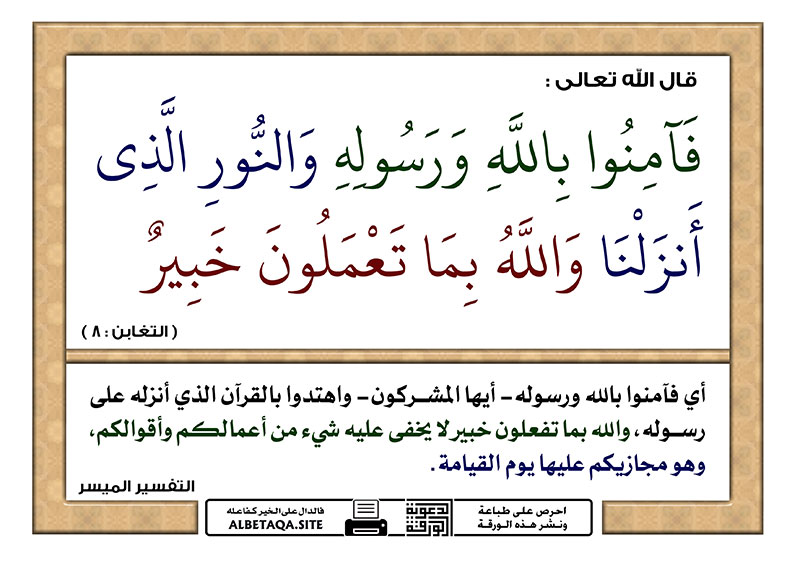 قال الله تعالى :
فَآمِنُوا بِاللَّهِ وَرَسُولِهِ وَالنُّورِ الَّذِى
أَنزَلْنَا وَاللَّهُ بِمَا تَعْمَلُونَ خَبِيرٌ
( التغابن : ٨ )
أي فآمنوا بالله ورسوله - أيها المشركون - واهتدوا بالقرآن الذي أنزله على
رسوله ، والله بما تفعلون خبير لا يخفى عليه شيء من أعمالكم وأقوالكم،
وهو مجازيكم عليها يوم القيامة .
التفسير الميسر
احرص على طباعة
ونشر هذه الورقة
الدعوية
الورقة
فالدال على الخير كفاعله
ALBETAQA.SITE